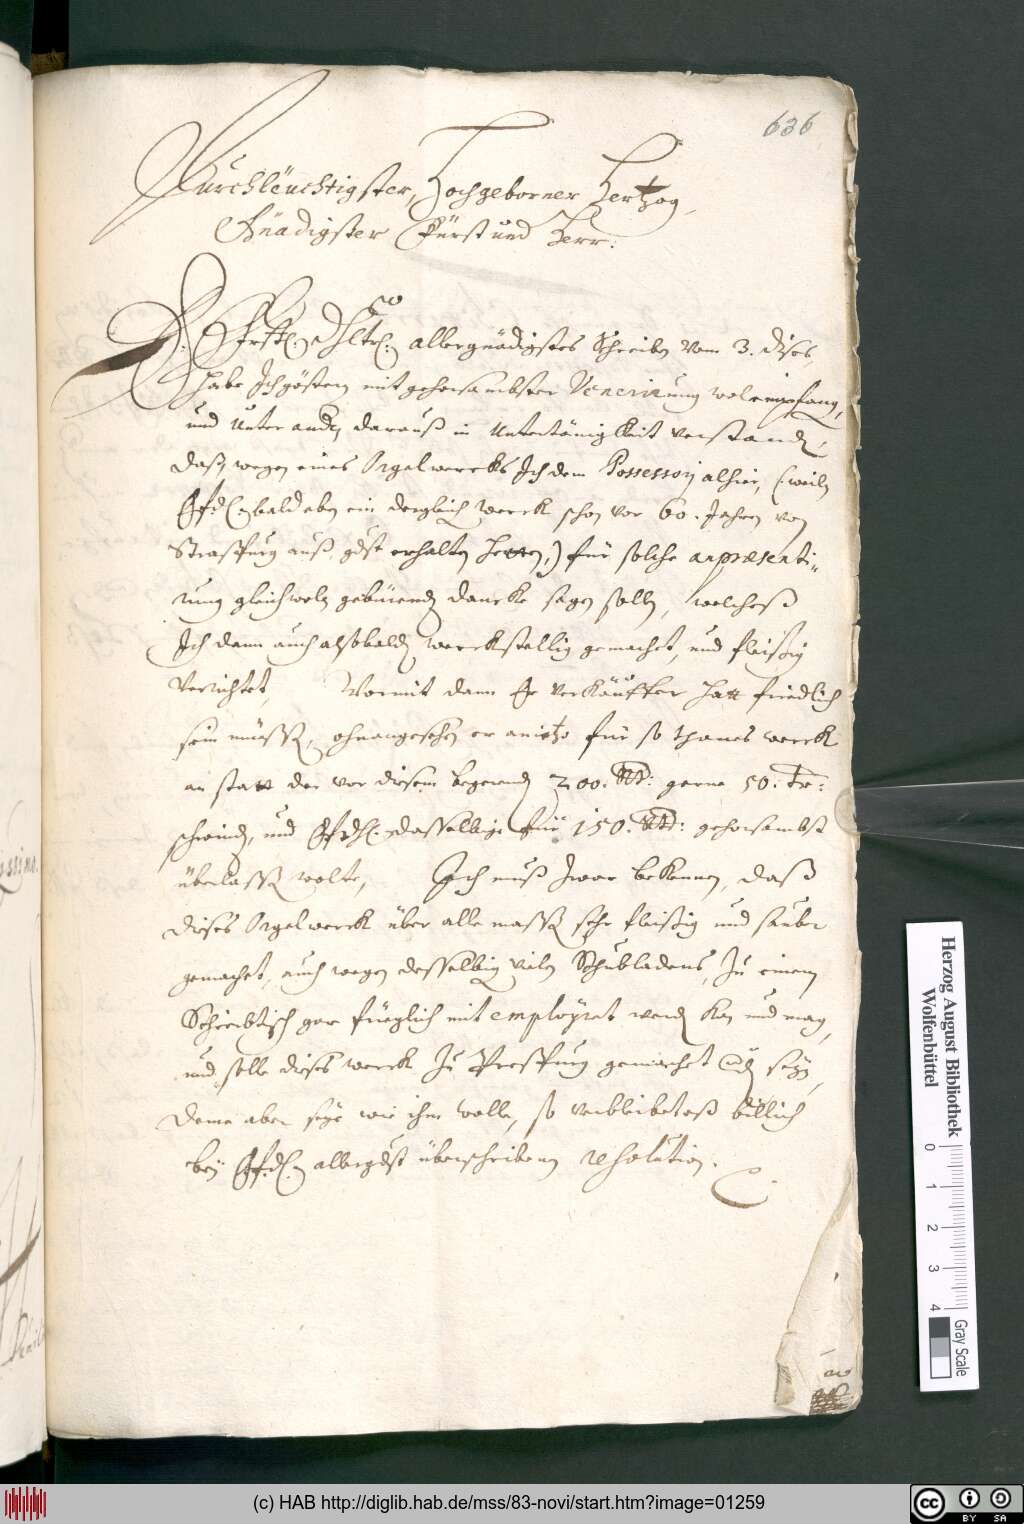 636
Durchleüchtigster, Hochgeborner Hertzog,
Gnädigster Fürst und Herr:
E. Frstl: Dhltn: allergnädigstes Schreiben vom 3. dises,
habe Ich gestern mit gehorsambster Venerirung wol empfang,
und unter andn darauß in Untertänigkeit verstanden,
daß wegen eines Orgelwercks Ich dem Possessorj alhier, (weiln
bald eben ein dergleich werck schon vor 60. Jahren von
Straßburg auß erhalten hetten,) für solche anpræsenti-
rung gleichwoln gebürendn dancke sagen solln, welcheß
Ich dann auch alsobalden werckstellig gemachet, und fleißig
Verrichtet, Wormit dann Er verkäuffer hatt friedlich
sein müssen, ohnangesehen er anietzo für so thanes werck
an statt der vor diesem begerenden 200. Rt: gerne 50. Tr:
schwinden, und dasselbige für 150. Rt: gehorsambst
überlassen wolte, Ich muß zwar bekennen, daß
dieses Orgelwerck über alle massen sehr fleißig und sauber
gemachet, auch wegen desselbigen vielen Schubladens, zu einem
Schreibtisch gar füeglich mit employret werden kan und mag,
und solle dieses werck zu Preßburg gemachet worden seyn,
Deme aber seye wie ihm wolle, so verbleibet eß billich
bey allergdst überschribenen resolution.
Herzog August Bibliothek
Wolfenbüttel
0 1 2 3 4
Gray Scale
(c) HAB http://diglib.hab.de/mss/83-novi/start.htm?image=01259
cc BY SA